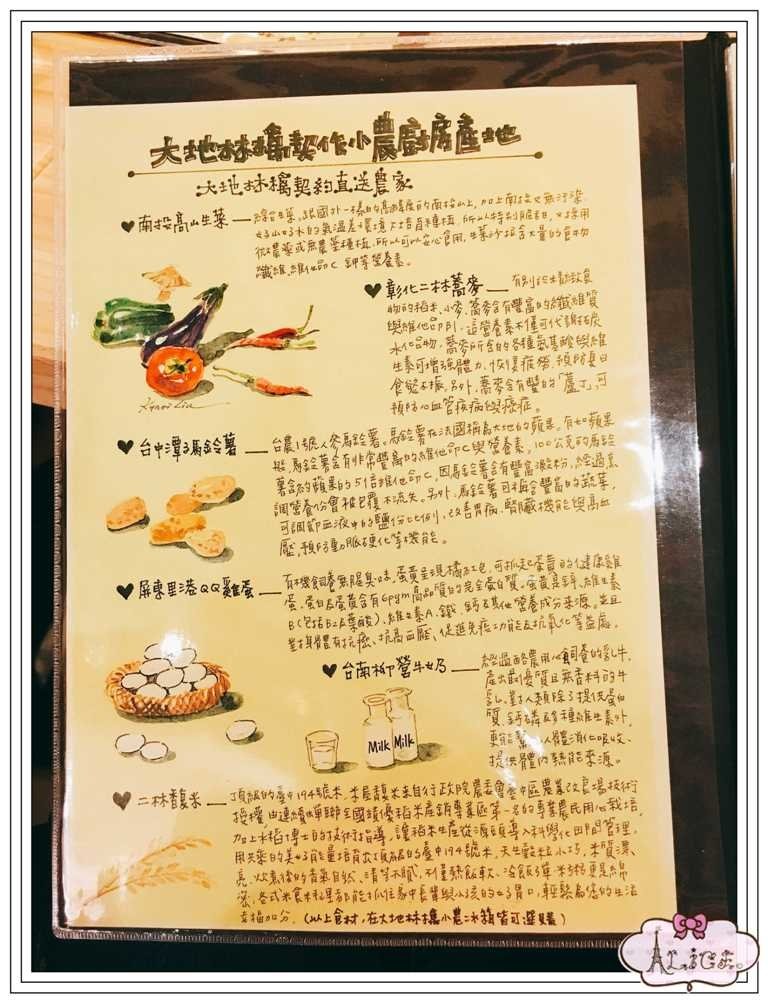 大地林橋契作小農廚房產地
大地林橋契約直送農家
南投高山生菜
綠谷生菜,跟國外一樣的高緯度的南投山上,加上南投又無污染
好山好水的氣溫差環境下培育種植,所以特別脆甜,又採用
微農藥或無農藥種植,所以可以安心食用,生菜沙拉含大量的食物
纖維,維他命C,鉀等營養素。
彰化二林蕎麥
有別於主動致良
物的稻米,小麥,蕎麥含有豐富的纖維質
與維他命P,這營養素不僅可代謝碳
水化合物,蕎麥所含的各種氨基酸與維
生素可增強體力,恢復疲勞,預防夏日
食慾不振。另外,蕎麥含有豐的「蘆丁」可
預防心血管疾病與癌症。
Kynoi Liu
台中潭子馬鈴薯
台農1號人參馬鈴薯。馬鈴薯在法國稱為大地的蘋果。有如蘋果
般,馬鈴薯含有非常豐富的維他命C與營養素,100公克的馬鈴
薯含約蘋果的5倍維他命C,因馬鈴薯含有豐富澱粉,經過烹
調營養份會被包覆不流失。另外,馬鈴薯可稱含豐富的蔬菜,
可調節血液中的鹽份比例,改善胃病,腎臟機能與高血
壓,預防動脈硬化等機能。
屏東里港QQ雞蛋
有機飼養無腥臭味,蛋黃呈現橘紅色,可抓起蛋黃的健康雞
蛋,蛋白及蛋黃含有6pym高品質的完全蛋白質。蛋黃是鋅,維生素
B(包括B2及葉酸),維生素A,鐵,鈣及其他營養成分來源。並且
對身體有抗癌、抗高血壓、促進免疫功能及抗氧化等益處。
台南柳營牛奶
經過酪農用心飼養的乳牛,
產出最優質且無香料的牛
乳,對人類除了提供蛋白
質,鈣磷及多種維生素外,
更能幫助人體消化吸收、
提供體內熱能來源。
Milk Milk
二林馥米
頂級的臺中194號米,米長馥米來自行政院農委會臺中區農業改良場技術
授權,由連續蟬聯全國績優稻米產銷專業區第一名的專業農民用心栽培,
加上水稻博士的技術指導,讓稻米生產從源頭導入科學化田間管理,
用共築的美好能量培育出頂級品的臺中194號米,天生穀粒小巧,米質潔、
亮,炊煮後的香氣自然、清等不膩,不僅熱飯軟、冷飯彈,米粥更是綿
密,各式米食料理都能抓住家中長輩與小孩的好胃口,輕鬆為您的生活
幸福加分。(以上食材,在大地林橋小農冰箱皆可選購)
Alice.